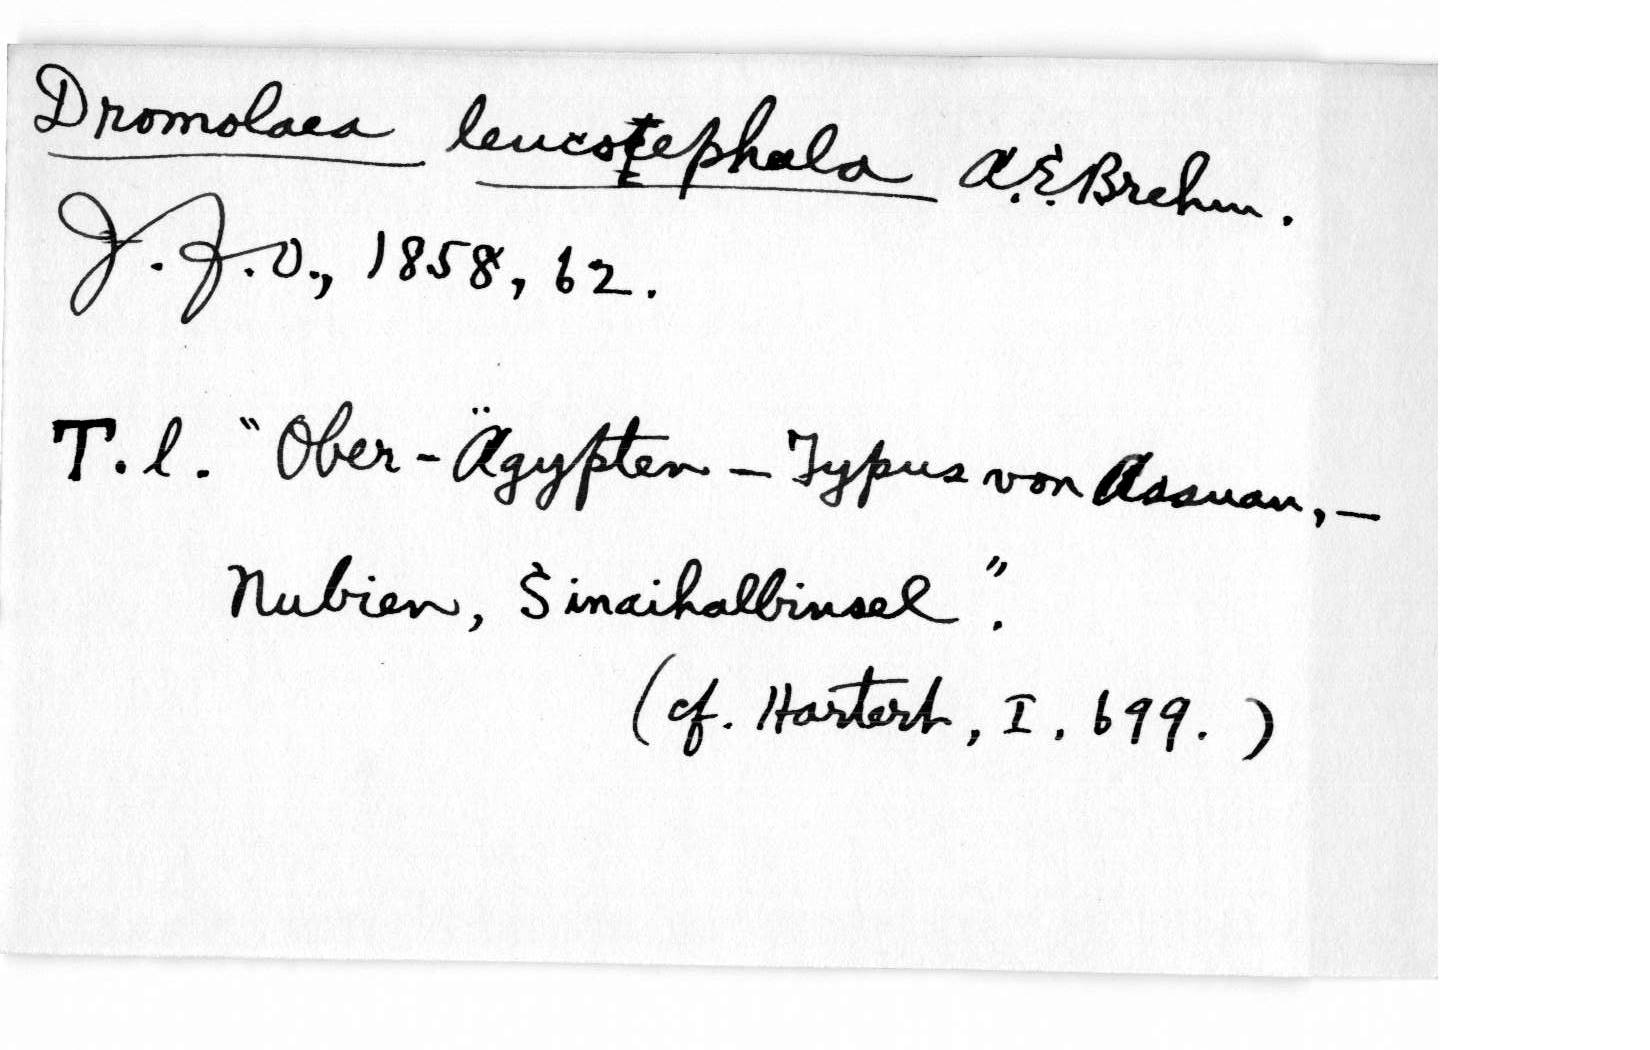 Dromolaea leucocephala A.E. Brehm.
J.f.O., 1858, 62.
T.l. "Ober-Ägypten – Typus von Assuan, –
Nubien, Sinaihalbinsel".
(cf. Hartert, I. 699.)